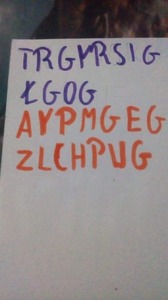 TRGYRSIG
ŁGOG
AYPMGEG
ZLCHPUG